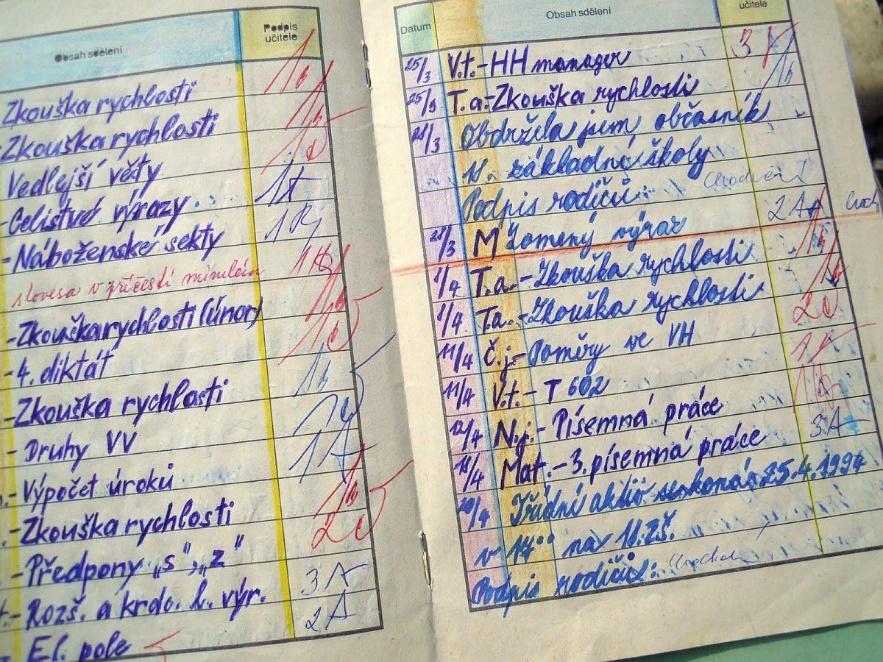 Obsah sdělení
Podpis učitele
Zkouška rychlosti
-Zkouška rychlosti
Vedlejší věty
-Celistvé výrazy
-Náboženské sekty
slovesa v příčestí minulém
-Zkouška rychlosti (únor)
-4. diktát
-Zkouška rychlosti
-Druhy VV
-Výpočet úroků
-Zkouška rychlosti
-Předpony „s", „z"
-Rozš. a krác. l. výr. 3
El. pole
Datum
Obsah sdělení
učitele
25/3 V.t.-HH manager 3
25/3 T.a-Zkouška rychlosti
Obdržela jsem občasník
základní školy
Podpis rodičů:
M Lomený výraz 2
1/4 T.a.-Zkouška rychlosti
1/4 Ta.-Zkouška rychlosti
11/4 Č.j.-Poměry ve VH
11/4 V.t.-T 602
12/4 N.j.-Písemná práce
18/4 Mat.-3. písemná práce 3
Třídní aktiv se koná 25.4.1994
v 17⁰⁰ na 11.ZŠ.
Podpis rodičů: